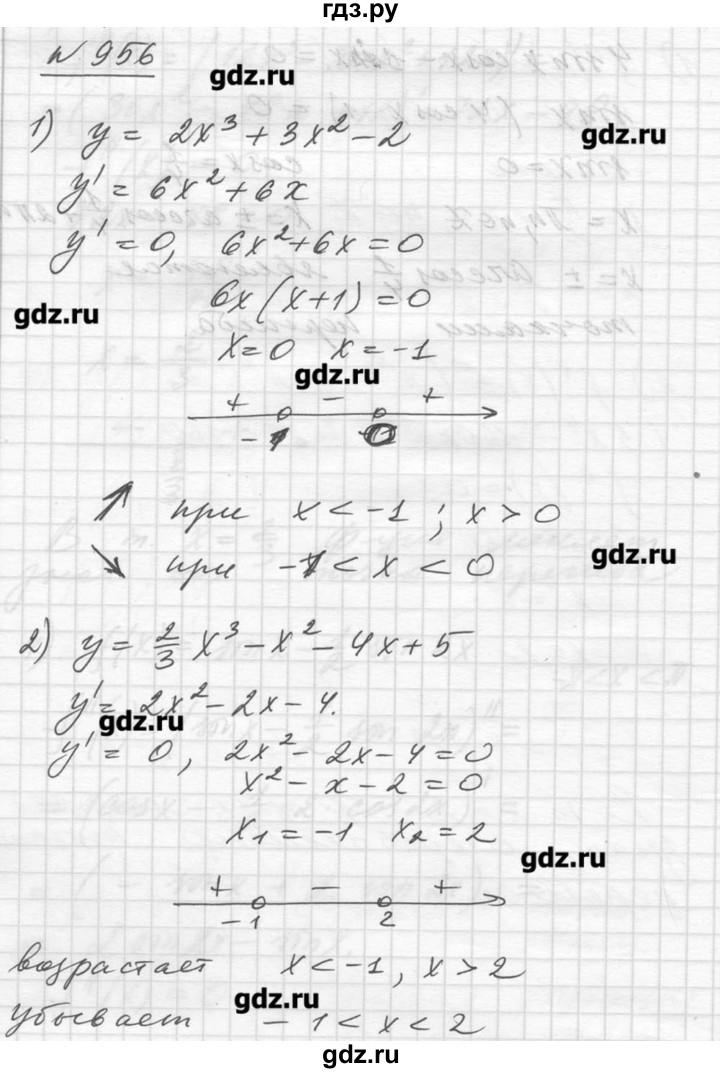 гдз.ру
№ 956
gdz.ru
1) y = 2x³ + 3x² - 2
gdz.ru
y' = 6x² + 6x
y' = 0, 6x² + 6x = 0
6x(x+1) = 0
gdz.ru
x = 0 x = -1
gdz.ru
+ - +
-1 0
↗ при x < -1 ; x > 0
gdz.ru
↘ при -1 < x < 0
2) y = 2/3 x³ - x² - 4x + 5
y' = 2x² - 2x - 4.
gdz.ru
y' = 0, 2x² - 2x - 4 = 0
x² - x - 2 = 0
x₁ = -1 x₂ = 2
gdz.ru
+ - +
-1 2
возрастает x < -1, x > 2
gdz.ru
убывает -1 < x < 2
gdz.ru